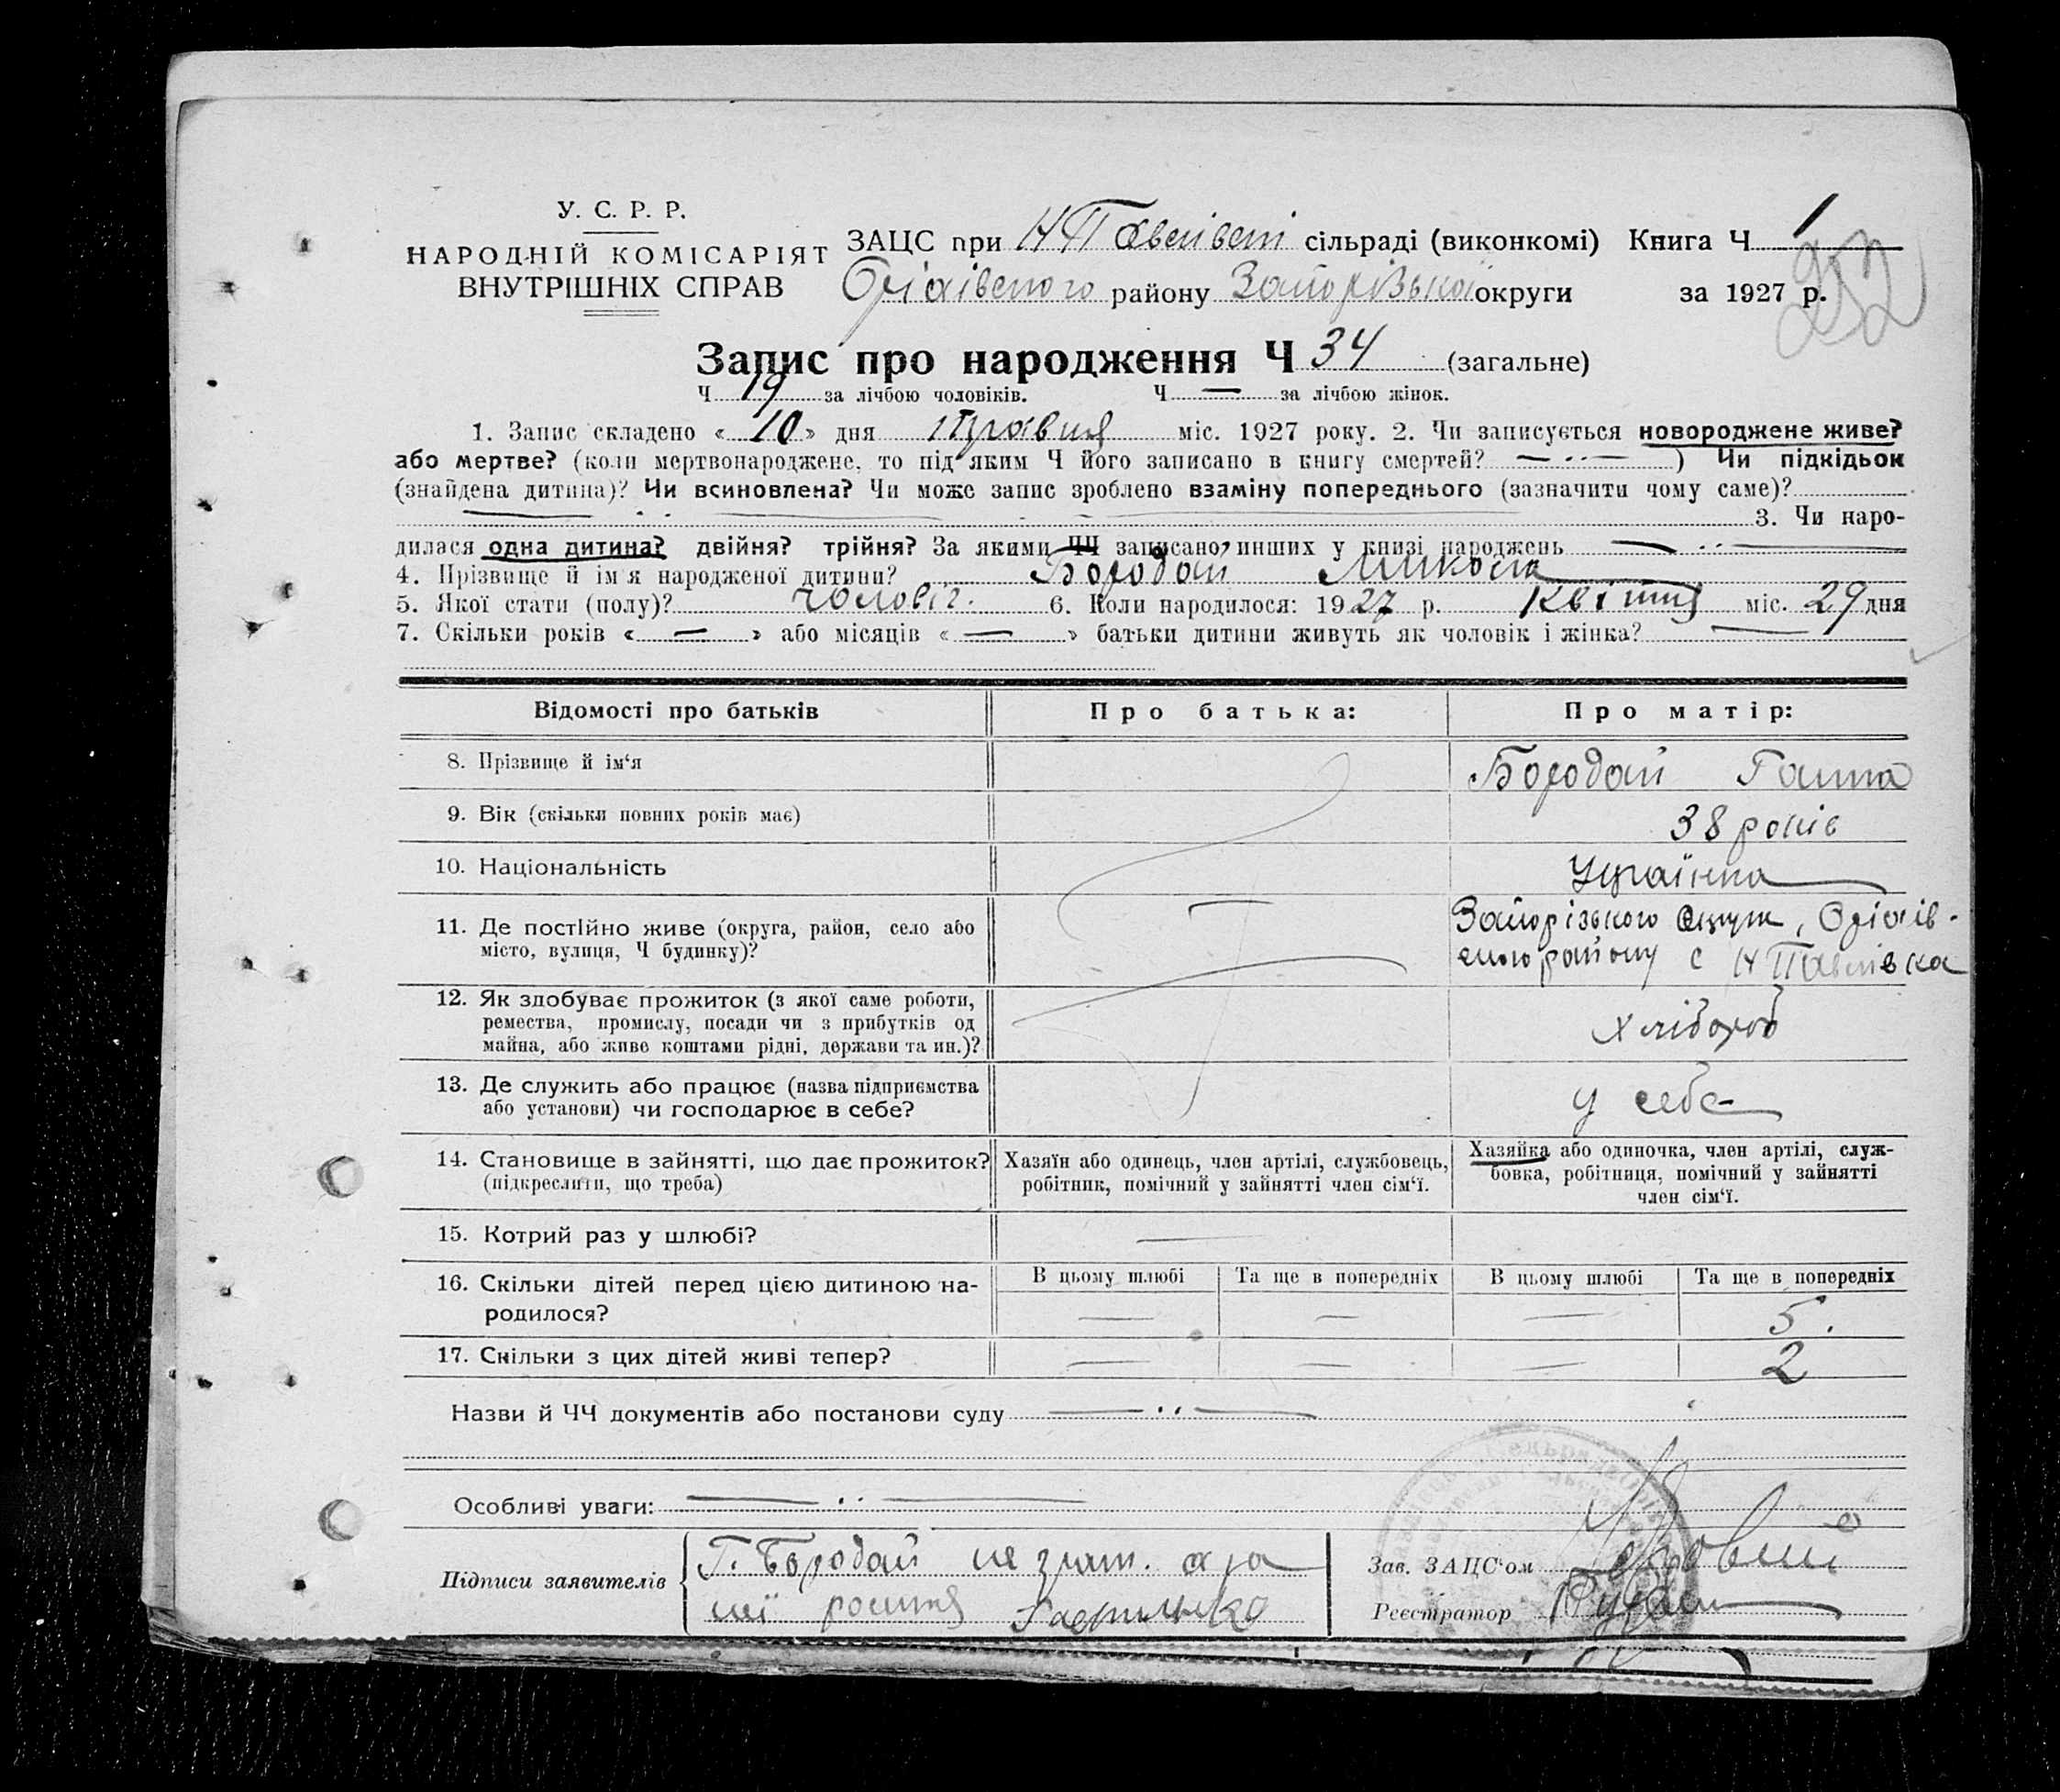 У. С. Р. Р.
НАРОДНІЙ КОМІСАРІЯТ
ВНУТРІШНІХ СПРАВ
ЗАЦС при Н Павлівсті сільраді (виконкомі) Книга Ч 1
Оріхівського району Запорізької округи за 1927 р.
252
Запис про народження Ч 34 (загальне)
Ч 19 за лічбою чоловіків. Ч — за лічбою жінок.
1. Запис складено « 10 » дня травня міс. 1927 року. 2. Чи записується новороджене живе?
або мертве? (коли мертвонароджене, то під яким Ч його записано в книгу смертей? — ·· — ) Чи підкідьок
(знайдена дитина)? Чи всиновлена? Чи може запис зроблено взаміну попереднього (зазначити чому саме)?
3. Чи наро-
дилася одна дитина? двійня? трійня? За якими ЧЧ записано, инших у книзі народжень — ·· —
4. Прізвище й ім'я народженої дитини? Бородай Микола
5. Якої стати (полу)? чоловіч. 6. Коли народилося: 1927 р. Квітня міс. 29 дня
7. Скільки років « — » або місяців « — » батьки дитини живуть як чоловік і жінка? —
Відомості про батьків Про батька: Про матір:
8. Прізвище й ім'я Бородай Ганна
9. Вік (скільки повних років має) 38 років
10. Національність Українка
11. Де постійно живе (округа, район, село або Запорізького округи, Оріхів-
місто, вулиця, Ч будинку)? ського району с Н Павлівка
12. Як здобуває прожиток (з якої саме роботи,
ремества, промислу, посади чи з прибутків од
майна, або живе коштами рідні, держави та ин.)? хлібороб
13. Де служить або працює (назва підприємства
або установи) чи господарює в себе? у себе
14. Становище в зайнятті, що дає прожиток? Хазяїн або одинець, член артілі, службовець, Хазяйка або одиночка, член артілі, служ-
(підкреслити, що треба) робітник, помічний у зайнятті член сім'ї. бовка, робітниця, помічний у зайнятті
член сім'ї.
15. Котрий раз у шлюбі? —
16. Скільки дітей перед цією дитиною на- В цьому шлюбі Та ще в попередніх В цьому шлюбі Та ще в попередніх
родилося? — — — 5.
17. Скільки з цих дітей живі тепер? — — — 2
Назви й ЧЧ документів або постанови суду — ·· —
Особливі уваги: — ·· —
Підписи заявителів Г. Бородай не грам. а за
неї
Зав. ЗАЦС'ом
Реєстратор